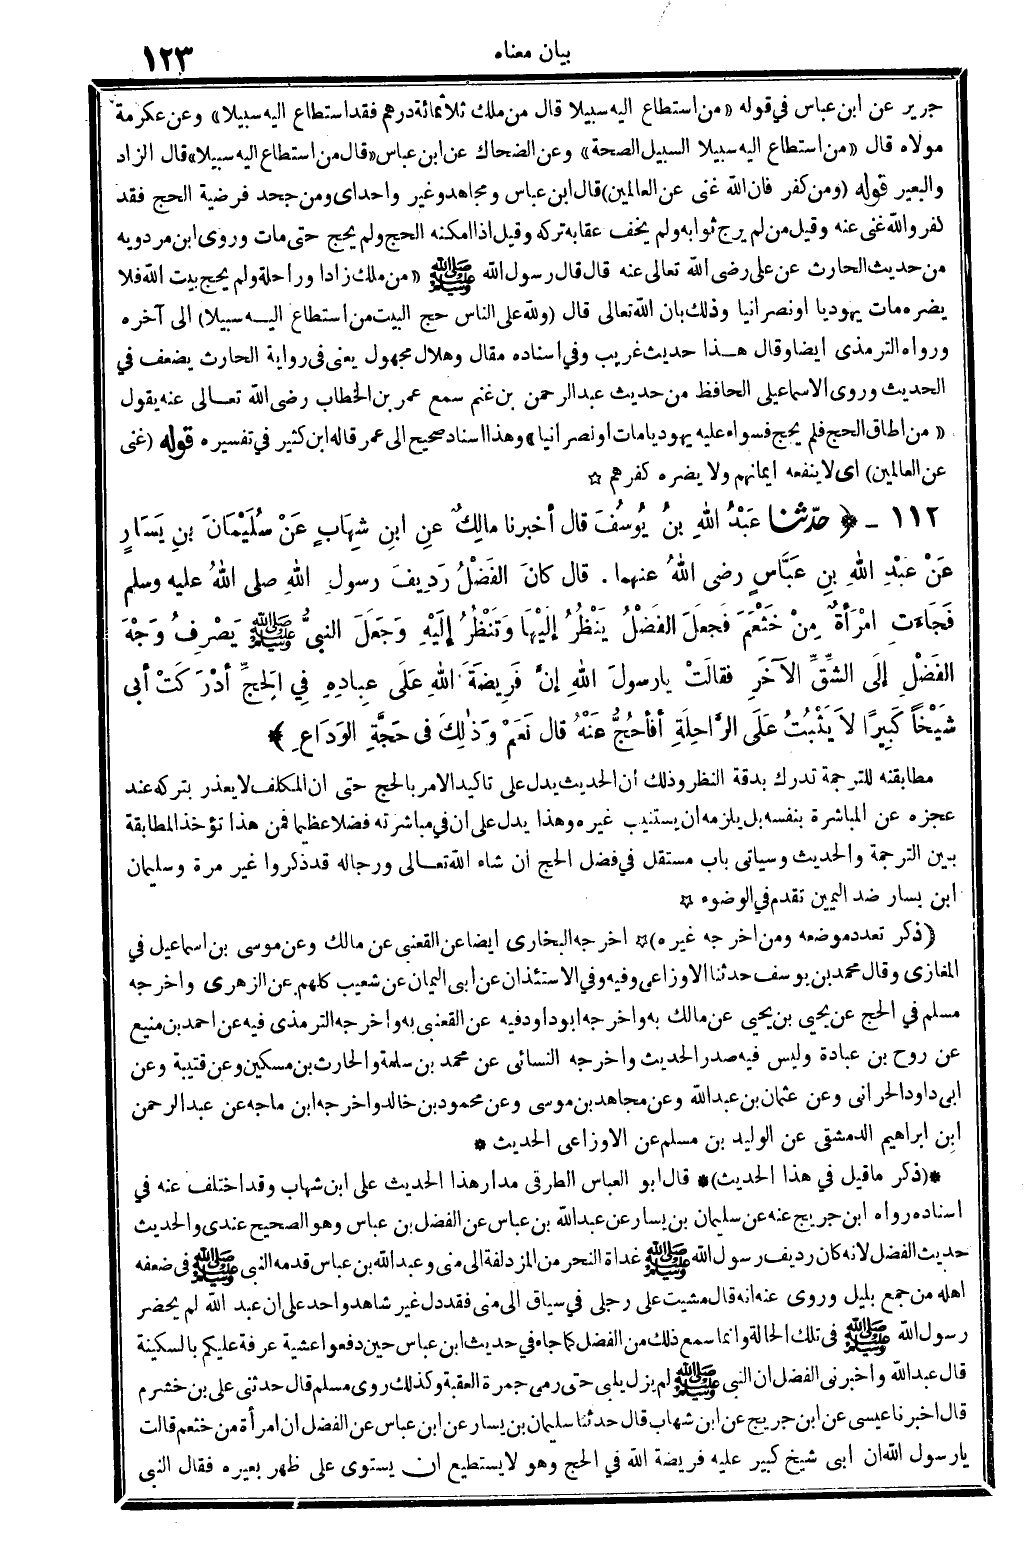 بيان معناه ١٢٣
جرير عن ابن عباس في قوله «من استطاع اليه سبيلا قال من ملك ثلاثمائة درهم فقد استطاع اليه سبيلا» وعن عكرمة
مولاه قال «من استطاع اليه سبيلا السبيل الصحة» وعن الضحاك عن ابن عباس «قال من استطاع اليه سبيلا» قال الزاد
والبعير قوله (ومن كفر فان الله غنى عن العالمين) قال ابن عباس ومجاهد وغير واحد اى ومن جحد فرضية الحج فقد
كفر والله غنى عنه وقيل من لم يرج ثوابه ولم يخف عقابه تركه وقيل اذا امكنه الحج ولم يحج حتى مات وروى ابن مردويه
من حديث الحارث عن على رضى الله تعالى عنه قال قال رسول الله ﷺ «من ملك زادا وراحلة ولم يحج بيت الله فلا
يضره مات يهوديا او نصرانيا وذلك بان الله تعالى قال (ولله على الناس حج البيت من استطاع اليه سبيلا) الى آخره
ورواه الترمذى ايضا وقال هذا حديث غريب وفي اسناده مقال وهلال مجهول يعنى فى رواية الحارث يضعف في
الحديث وروى الاسماعيلى الحافظ من حديث عبد الرحمن بن غنم سمع عمر بن الخطاب رضى الله تعالى عنه يقول
«من اطاق الحج فلم يحج فسواء عليه يهوديا مات او نصرانيا» وهذا اسناد صحيح الى عمر قاله ابن كثير في تفسيره قوله (غنى
عن العالمين) اى لا ينفعه ايمانهم ولا يضره كفرهم ☆
١١٢ - ﴿ حدّثنا عَبْدُ اللهِ بنُ يُوسُفَ قال أخبرنا مالِكٌ عنِ ابنِ شِهَابٍ عَنْ سُلَيْمَانَ بنِ يَسَارٍ
عَنْ عَبْدِ اللهِ بنِ عَبَّاسٍ رضى اللهُ عنهما . قال كانَ الفَضْلُ رَدِيفَ رسولِ اللهِ صلى اللهُ عليه وسلم
فَجَاءَتِ امْرَأةٌ مِنْ خَثْعَمَ فَجعلَ الفَضْلُ يَنْظُرُ إلَيْهَا وَتَنْظُرُ إلَيْهِ وَجَعَلَ النبىُّ ﷺ يَصْرِفُ وَجْهَ
الفَضْلِ إلَى الشِّقِّ الآخَرِ فقالَتْ يارسولَ اللهِ إنَّ فَرِيضَةَ اللهِ عَلَى عِبادِهِ فِي الحجِّ أدْرَكَتْ أبى
شَيْخاً كَبِيرًا لاَ يَثْبُتُ عَلَى الرَّاحِلَةِ أفَأحُجُّ عَنْهُ قال نَعَمْ وَذٰلِكَ فى حَجَّةِ الوَدَاعِ ﴾
مطابقته للترجمة تدرك بدقة النظر وذلك ان الحديث يدل على تاكيد الامر بالحج حتى ان المكلف لا يعذر بتركه عند
عجزه عن المباشرة بنفسه بل يلزمه ان يستنيب غيره وهذا يدل على ان في مباشرته فضلا عظيما فمن هذا تؤخذ المطابقة
بين الترجمة والحديث وسياتى باب مستقل في فضل الحج ان شاء الله تعالى ورجاله قد ذكروا غير مرة وسليمان
ابن يسار ضد اليمين تقدم في الوضوء ☆
(ذكر تعدد موضعه ومن اخرجه غيره) ☆ اخرجه البخارى ايضا عن القعنبى عن مالك وعن موسى بن اسماعيل في
المغازى وقال محمد بن يوسف حدثنا الاوزاعى وفيه وفي الاستئذان عن ابى اليمان عن شعيب كلهم عن الزهرى واخرجه
مسلم في الحج عن يحيى بن يحيى عن مالك به واخرجه ابو داود فيه عن القعنبى به واخرجه الترمذى فيه عن احمد بن منيع
عن روح بن عبادة وليس فيه صدر الحديث واخرجه النسائى عن محمد بن سلمة والحارث بن مسكين وعن قتيبة وعن
ابى داود الحرانى وعن عثمان بن عبدالله وعن مجاهد بن موسى وعن محمود بن خالد واخرجه ابن ماجه عن عبد الرحمن
ابن ابراهيم الدمشقى عن الوليد بن مسلم عن الاوزاعى الحديث *
*(ذكر ماقيل في هذا الحديث)* قال ابو العباس الطرقى مدار هذا الحديث على ابن شهاب وقد اختلف عنه في
اسناده رواه ابن جريج عنه عن سليمان بن يسار عن عبدالله بن عباس عن الفضل بن عباس وهو الصحيح عندى والحديث
حديث الفضل لانه كان رديف رسول الله ﷺ غداة النحر من المزدلفة الى منى وعبد الله بن عباس قدمه النبى ﷺ فى ضعفه
اهله من جمع بليل وروى عنه انه قال مشيت على رجلى في سياق الى منى فقد دل غير شاهد واحد على ان عبد الله لم يحضر
رسول الله ﷺ فى تلك الحالة وانما سمع ذلك من الفضل كما جاء في حديث ابن عباس حين دفعوا عشية عرفة عليكم بالسكينة
قال عبد الله واخبرنى الفضل ان النبى ﷺ لم يزل يلبى حتى رمى جمرة العقبة وكذلك روى مسلم قال حدثنى على بن خشرم
قال اخبرنا عيسى عن ابن جريج عن ابن شهاب قال حدثنا سليمان بن يسار عن ابن عباس عن الفضل ان امرأة من خثعم قالت
يارسول الله ان ابى شيخ كبير عليه فريضة الله في الحج وهو لا يستطيع ان يستوى على ظهر بعيره فقال النبى